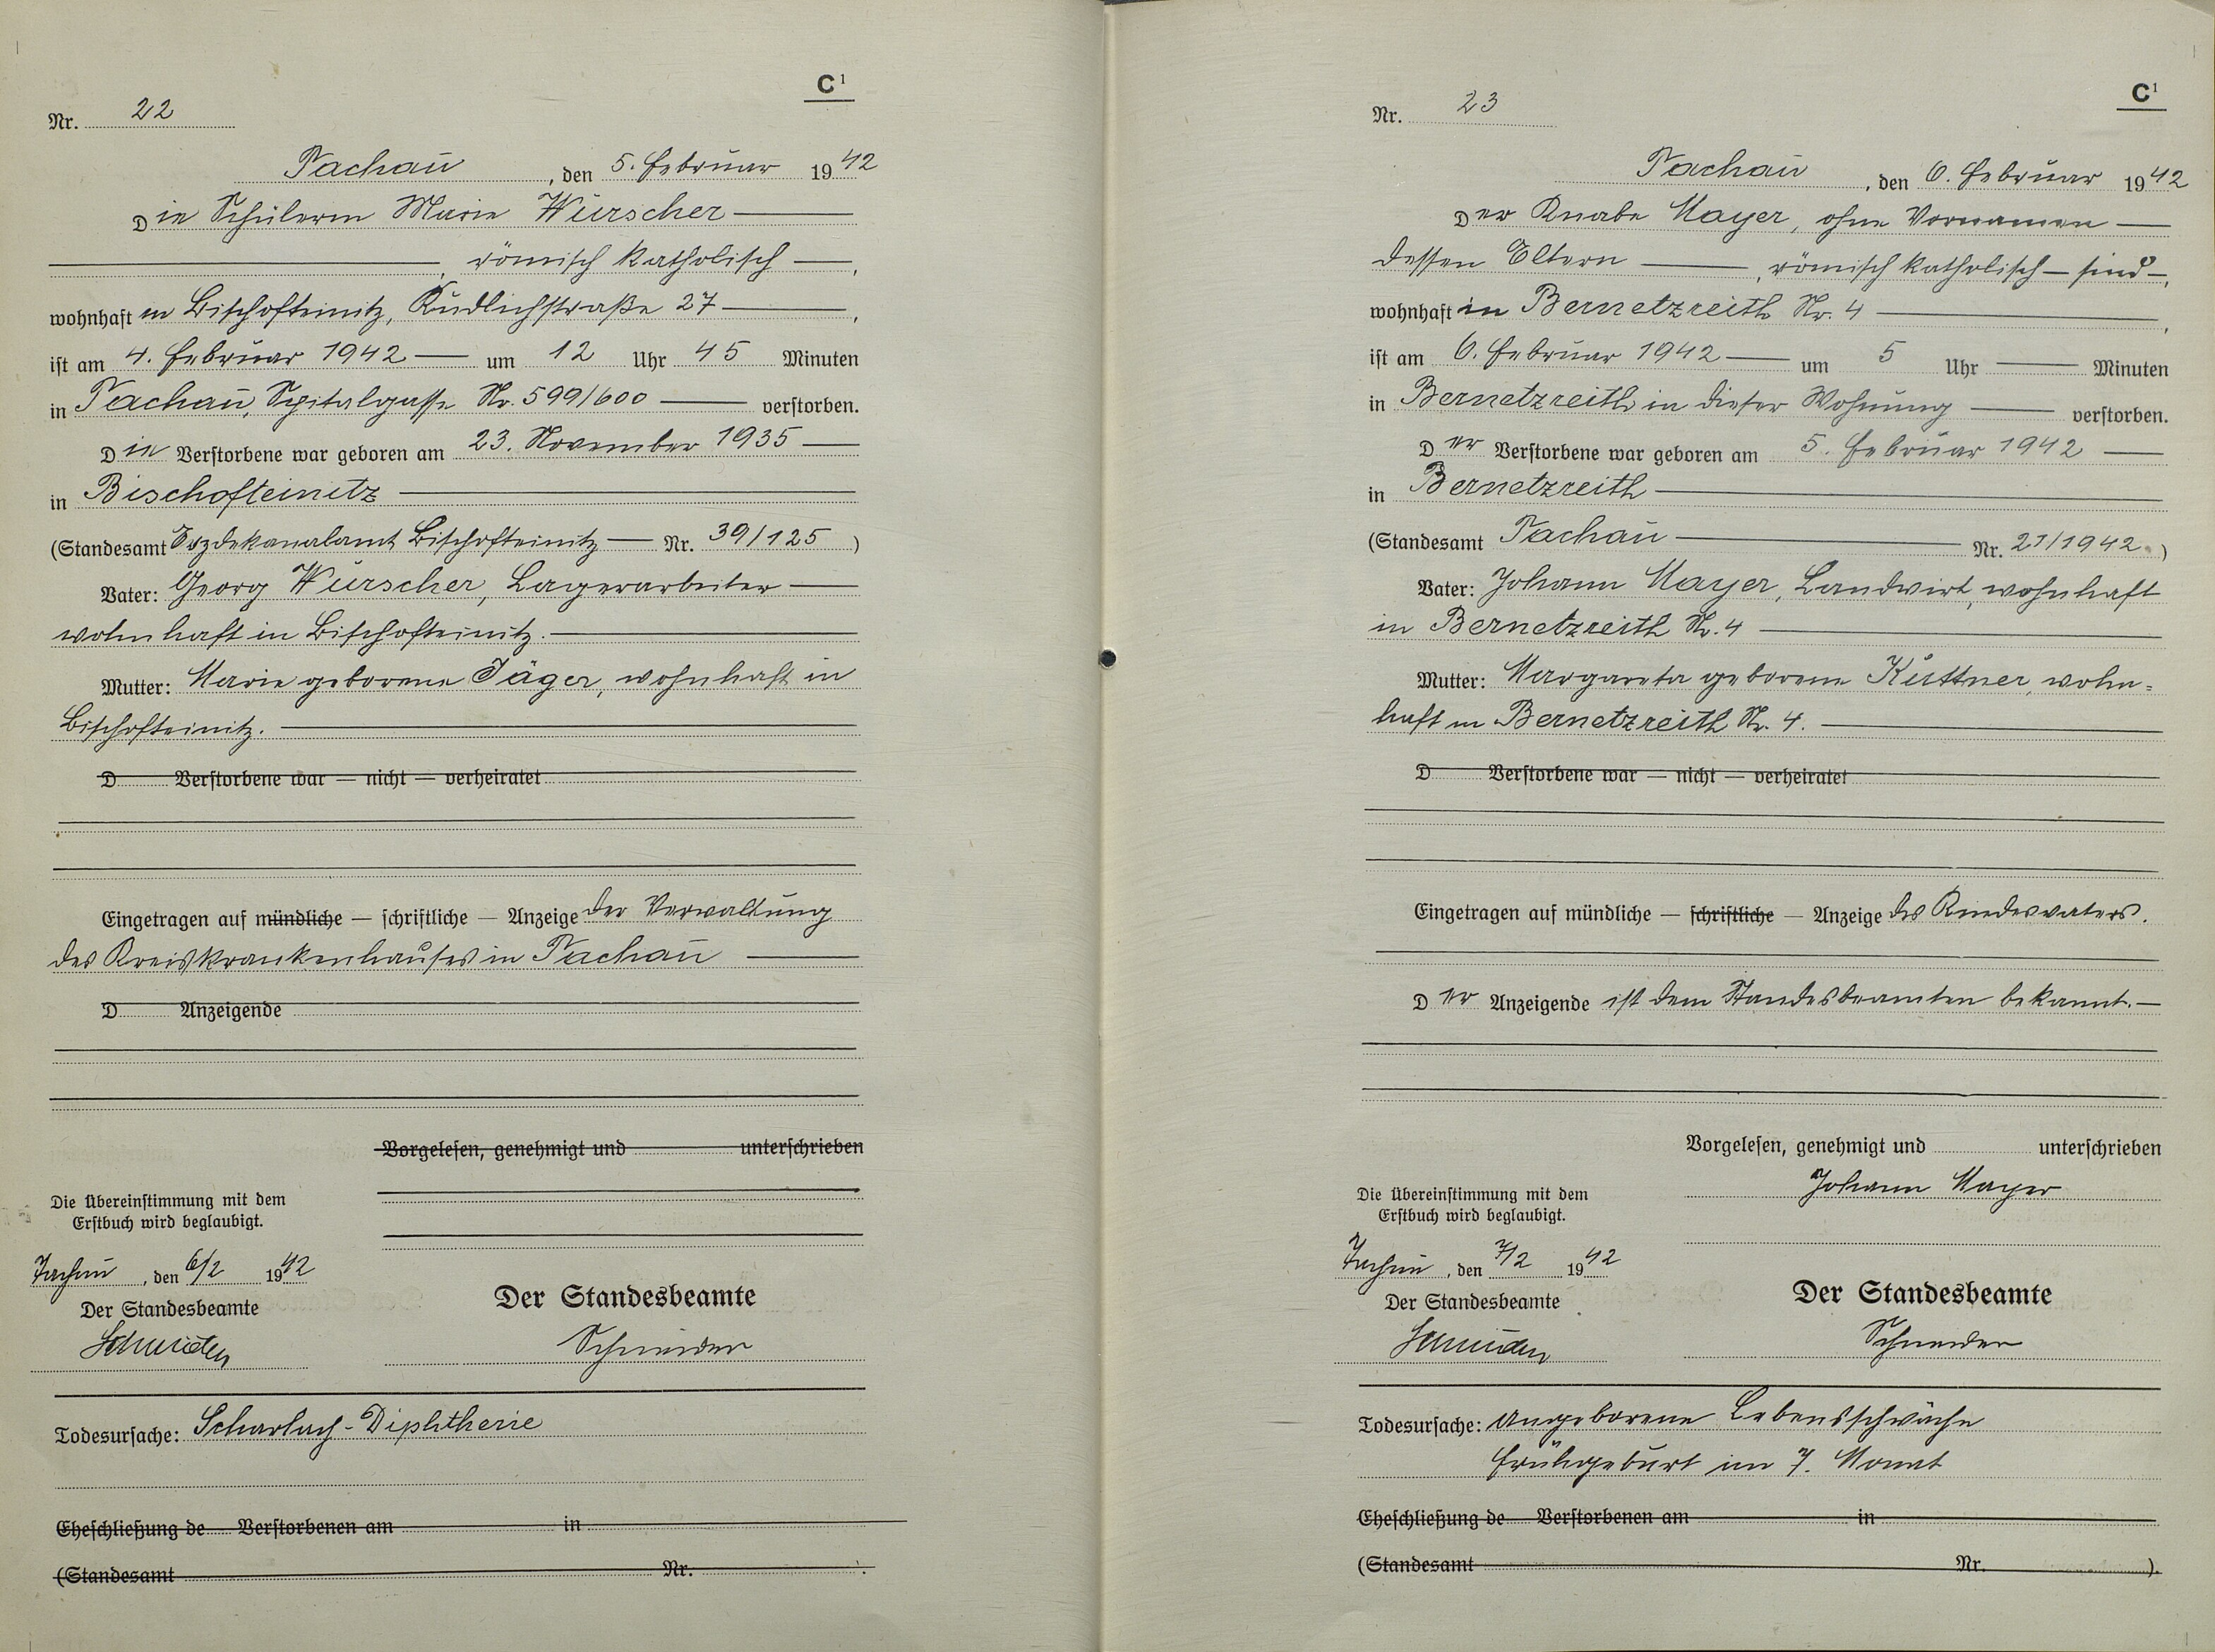 C¹
Nr. 22
Tachau, den 5. Februar 1942
Die Schülerin Marie Würscher
, römisch katholisch ,
wohnhaft in Bischofteinitz, Kudlichstraße 27 ,
ist am 4. Februar 1942 um 12 Uhr 45 Minuten
in Tachau, Spitalgasse Nr. 599/600 verstorben.
Die Verstorbene war geboren am 23. November 1935
in Bischofteinitz
(Standesamt Erzdekanalamt Bischofteinitz Nr. 39/125 )
Vater: Georg Würscher, Lagerarbeiter
wohnhaft in Bischofteinitz.
Mutter: Marie geborene Jäger, wohnhaft in
Bischofteinitz.
D Verstorbene war — nicht — verheiratet
Eingetragen auf mündliche — schriftliche — Anzeige der Verwaltung
des Kreiskrankenhauses in Tachau
D Anzeigende
Vorgelesen, genehmigt und unterschrieben
Die Übereinstimmung mit dem
Erstbuch wird beglaubigt.
Tachau, den 6/2 1942
Der Standesbeamte
Der Standesbeamte
Schneider
Schneider
Todesursache: Scharlach-Diphtherie
Eheschließung de Verstorbenen am in
(Standesamt Nr.
C¹
Nr. 23
Tachau, den 6. Februar 1942
Der Knabe Mayer, ohne Vornamen
dessen Eltern , römisch katholisch — sind —,
wohnhaft in Bernetzreith Nr. 4 ,
ist am 6. Februar 1942 um 5 Uhr — Minuten
in Bernetzreith in dieser Wohnung verstorben.
Der Verstorbene war geboren am 5. Februar 1942
in Bernetzreith
(Standesamt Tachau Nr. 27/1942.)
Vater: Johann Mayer, Landwirt, wohnhaft
in Bernetzreith Nr. 4
Mutter: Margareta geborene Küttner, wohn=
haft in Bernetzreith Nr. 4.
D Verstorbene war — nicht — verheiratet
Eingetragen auf mündliche — schriftliche — Anzeige des Kindesvaters.
Der Anzeigende ist dem Standesbeamten bekannt. —
Vorgelesen, genehmigt und unterschrieben
Johann Mayer
Die Übereinstimmung mit dem
Erstbuch wird beglaubigt.
Tachau, den 7/2 1942
Der Standesbeamte
Der Standesbeamte
Schneider
Schneider
Todesursache: Angeborene Lebensschwäche
Frühgeburt im 7. Monat
Eheschließung de Verstorbenen am in
(Standesamt Nr. ).